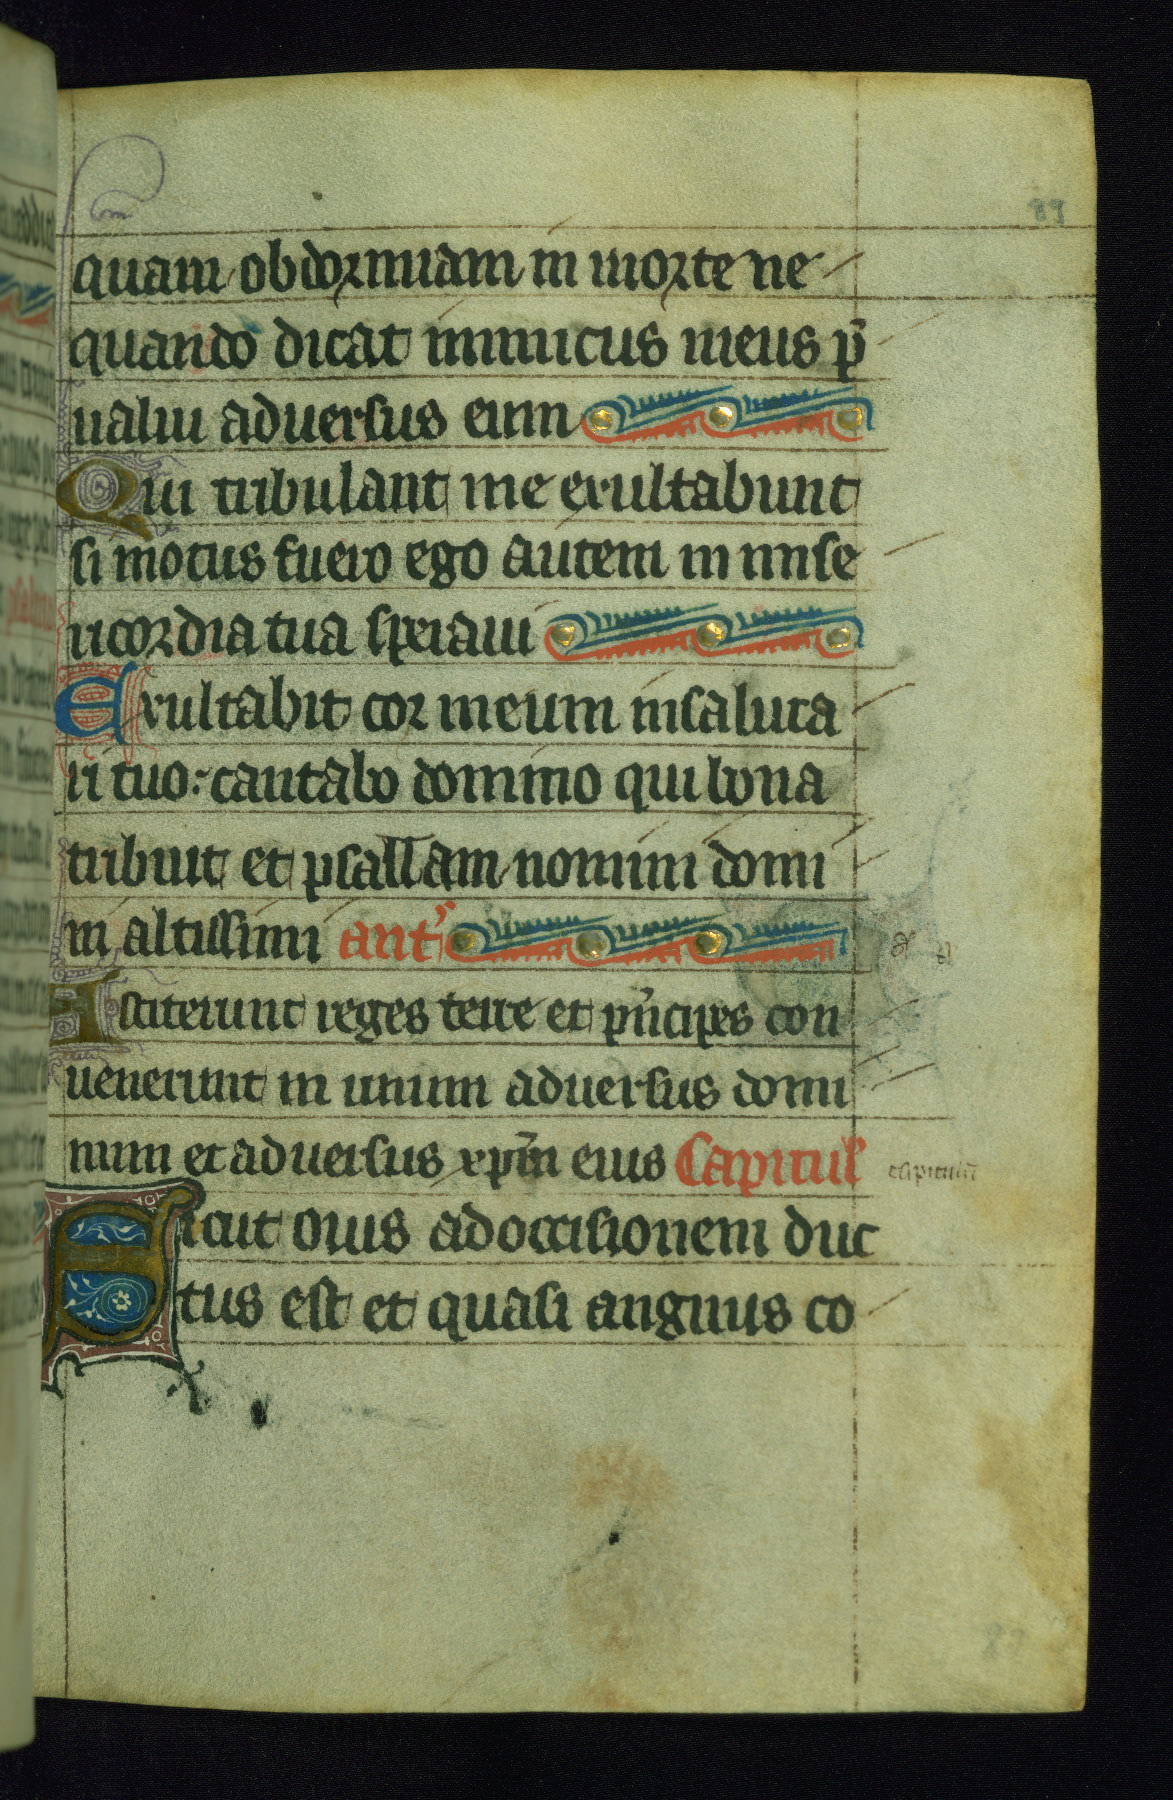 89
quam obdormiam in morte ne
quando dicat inimicus meus p̄
ualui aduersus eum
Qui tribulant me exultabunt
si motus fuero ego autem in mise
ricordia tua speraui
Exultabit cor meum in saluta
ri tuo: cantabo domino qui bona
tribuit et psallam nomini domi
ni altissimi ant̃
Astiterunt reges terre et pͥncipes con
uenerunt in unum aduersus domi
num et aduersus xp̄m eius Capitul̃
Sicut ouis ad occisionem duc
tus est et quasi angnus co
capitulū